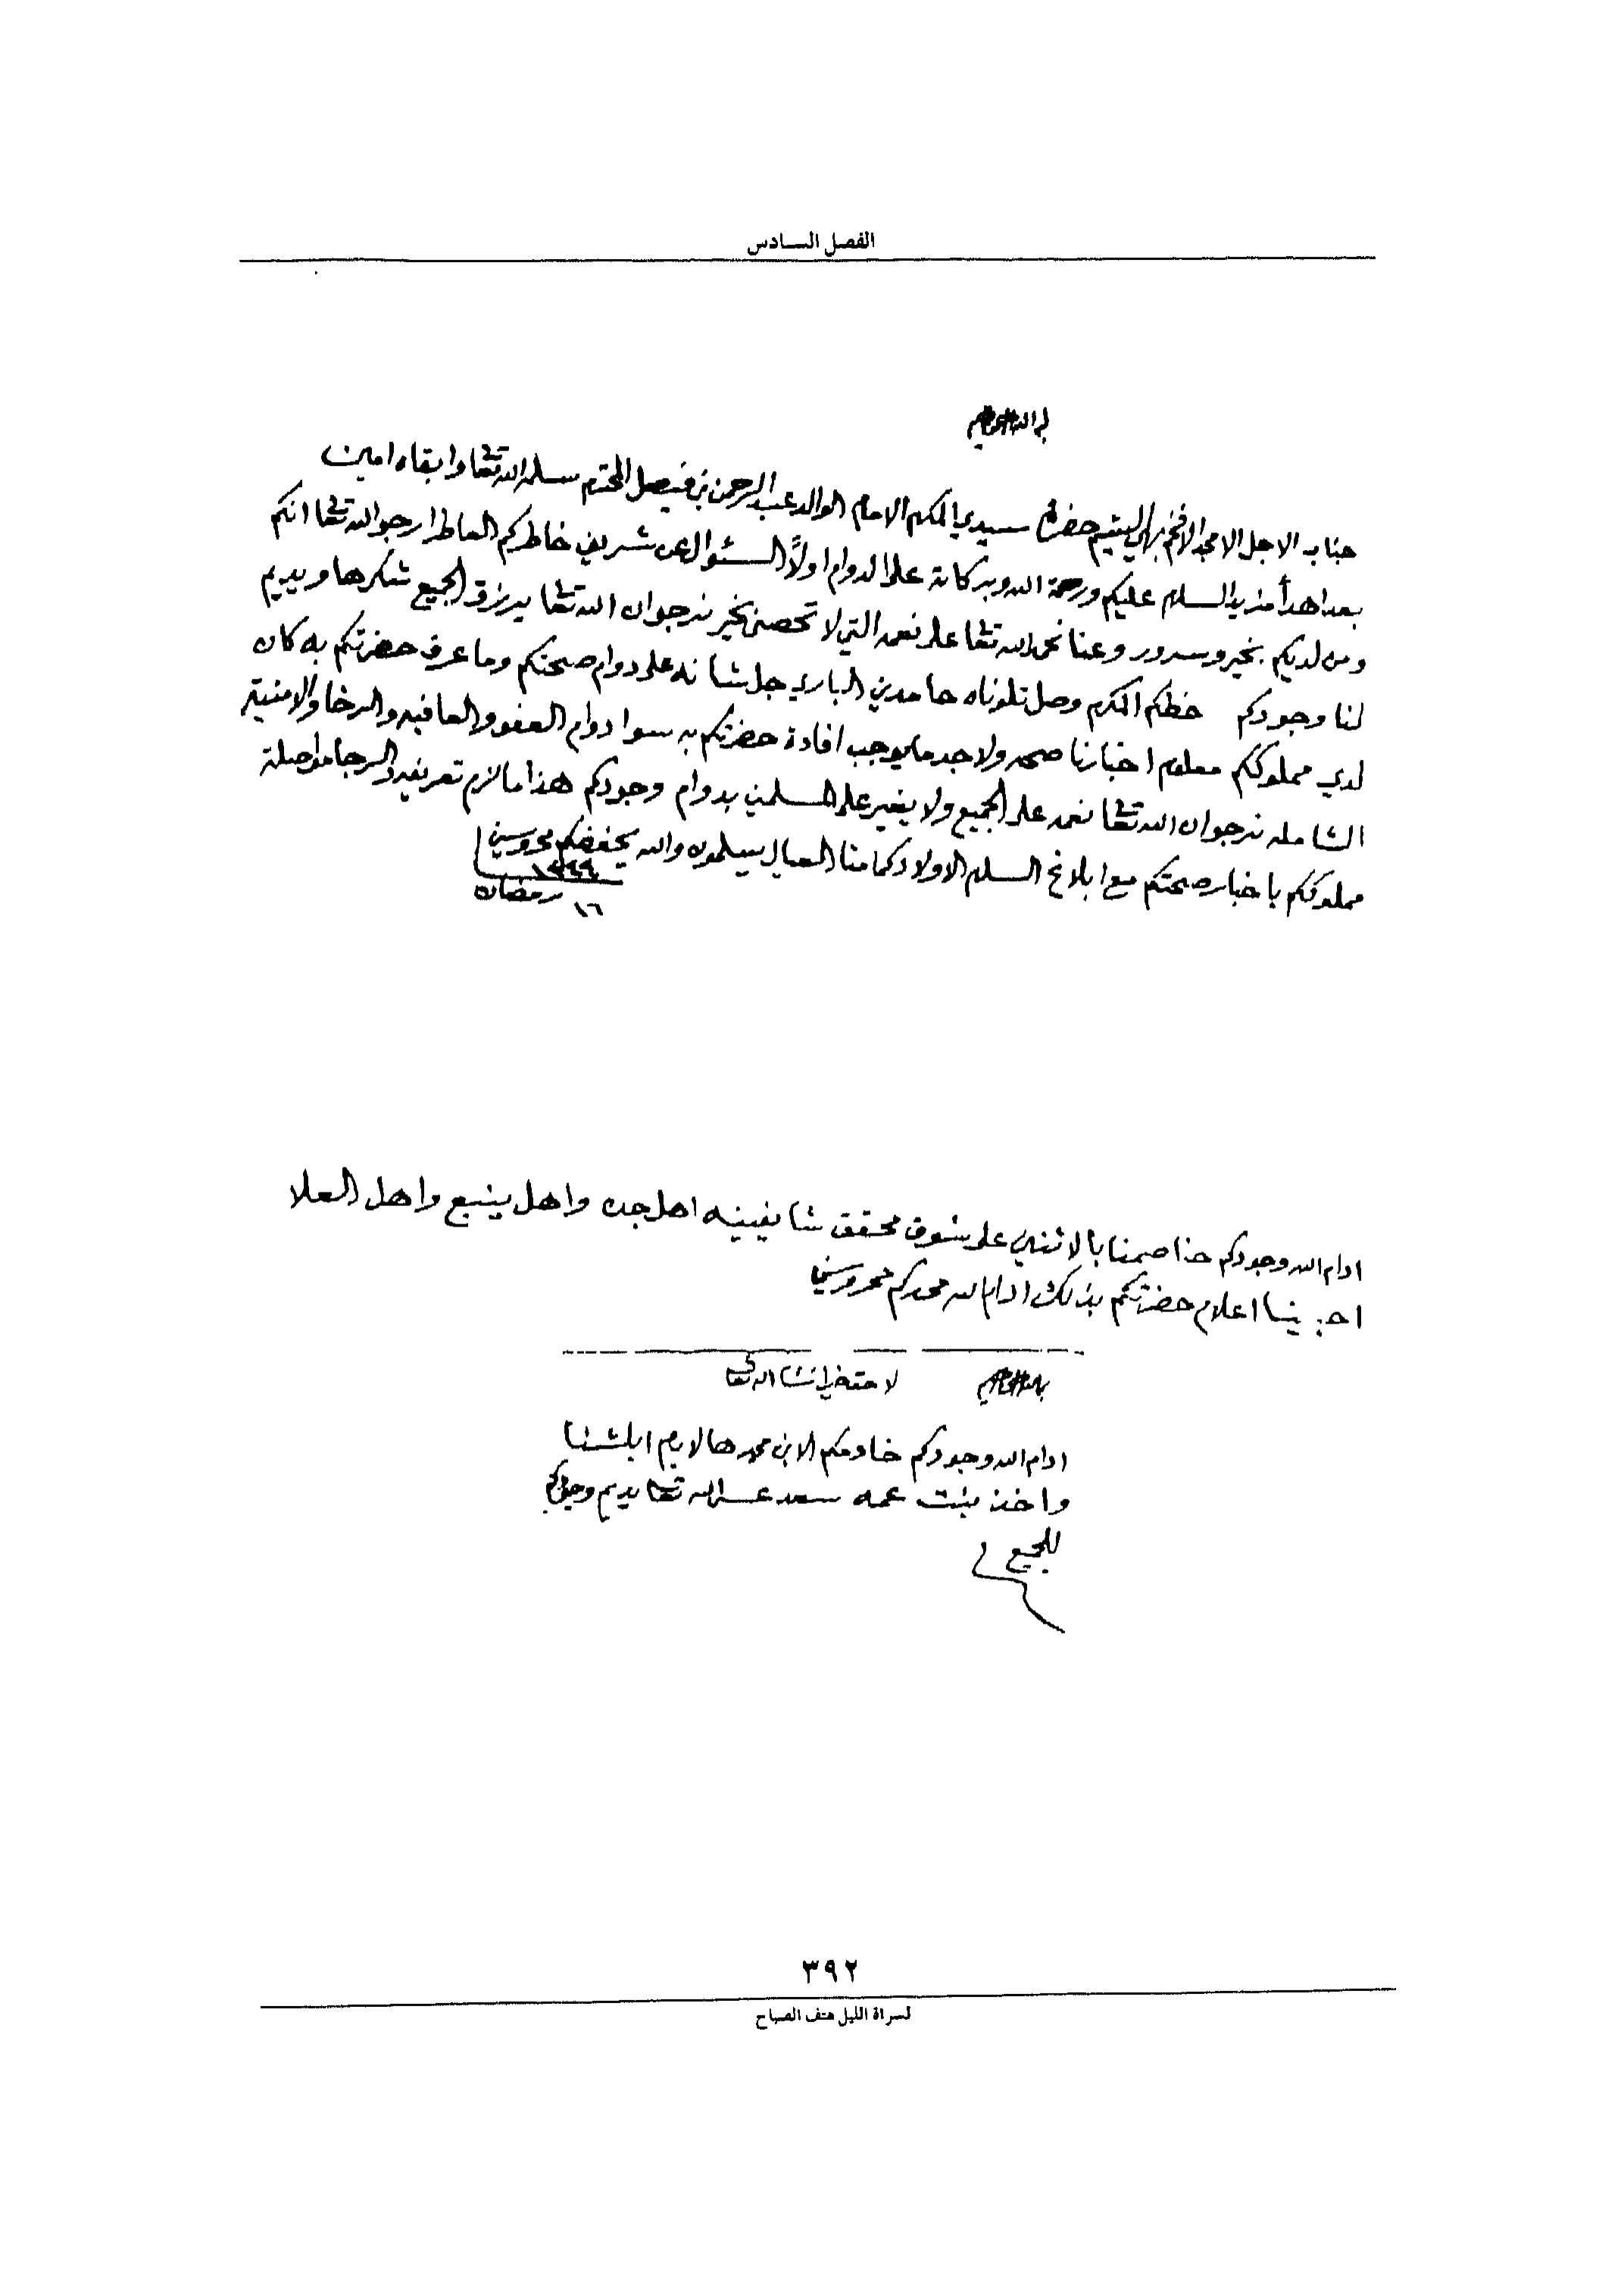 الفصل السادس
جناب الاجل الامجد الافخم بهي الشيم حضرة سيدي المكرم الامام الوالد عبدالرحمن بن فيصل المحترم سلمه الله تعا وابقاه امين
بعد اهدأ مزيد السلام عليكم ورحمة الله وبركاته على الدوام اولاً السئوال عن شريف خاطركم العاطر ارجو الله تعا انكم
ومن لديكم بخير وسرور وعنا نحمد الله تعا على نعمه التي لا تحصى بخير نرجو ان الله تعا يرزق الجميع شكرها ويديم
لنا وجودكم خطكم المكرم وصل تلوناه حامدين الباري جل شانه على دوام صحتكم وما عرف حضرتكم به كان
لدي مملوككم معلوم اخبارنا صحه ولا جد ما يوجب افادة حضرتكم به سوا دوام العفو والعافيه والرخا والامنية
الشامله نرجو ان الله تعا نعمه على الجميع ولا يغير على المسلمين بدوام وجودكم هذا ما لزم تعريفه والرجا مواصلة
مملوككم باخبار صحتكم مع ابلاغ السلام الاولاد كما منا العيال يسلمون والله يحفظكم محروسين
١٣٤٤
١٦ رمضان
ادام الله وجودكم حنا صمنا بالاثنين على شوف محقق شايفينه اهل جده واهل ينبع واهل العلا
احبينا اعلام حضرتكم بذلك ادام الله مجدكم محروسين
لا حقه خير انشا الله تعا
ادام الله وجودكم خادمكم الابن محمد هالايام
واخذ بنت عمه سعد عسا الله تعا يديم وجودكم
للجميع
٣٩٢
لسراة الليل هتف الصباح